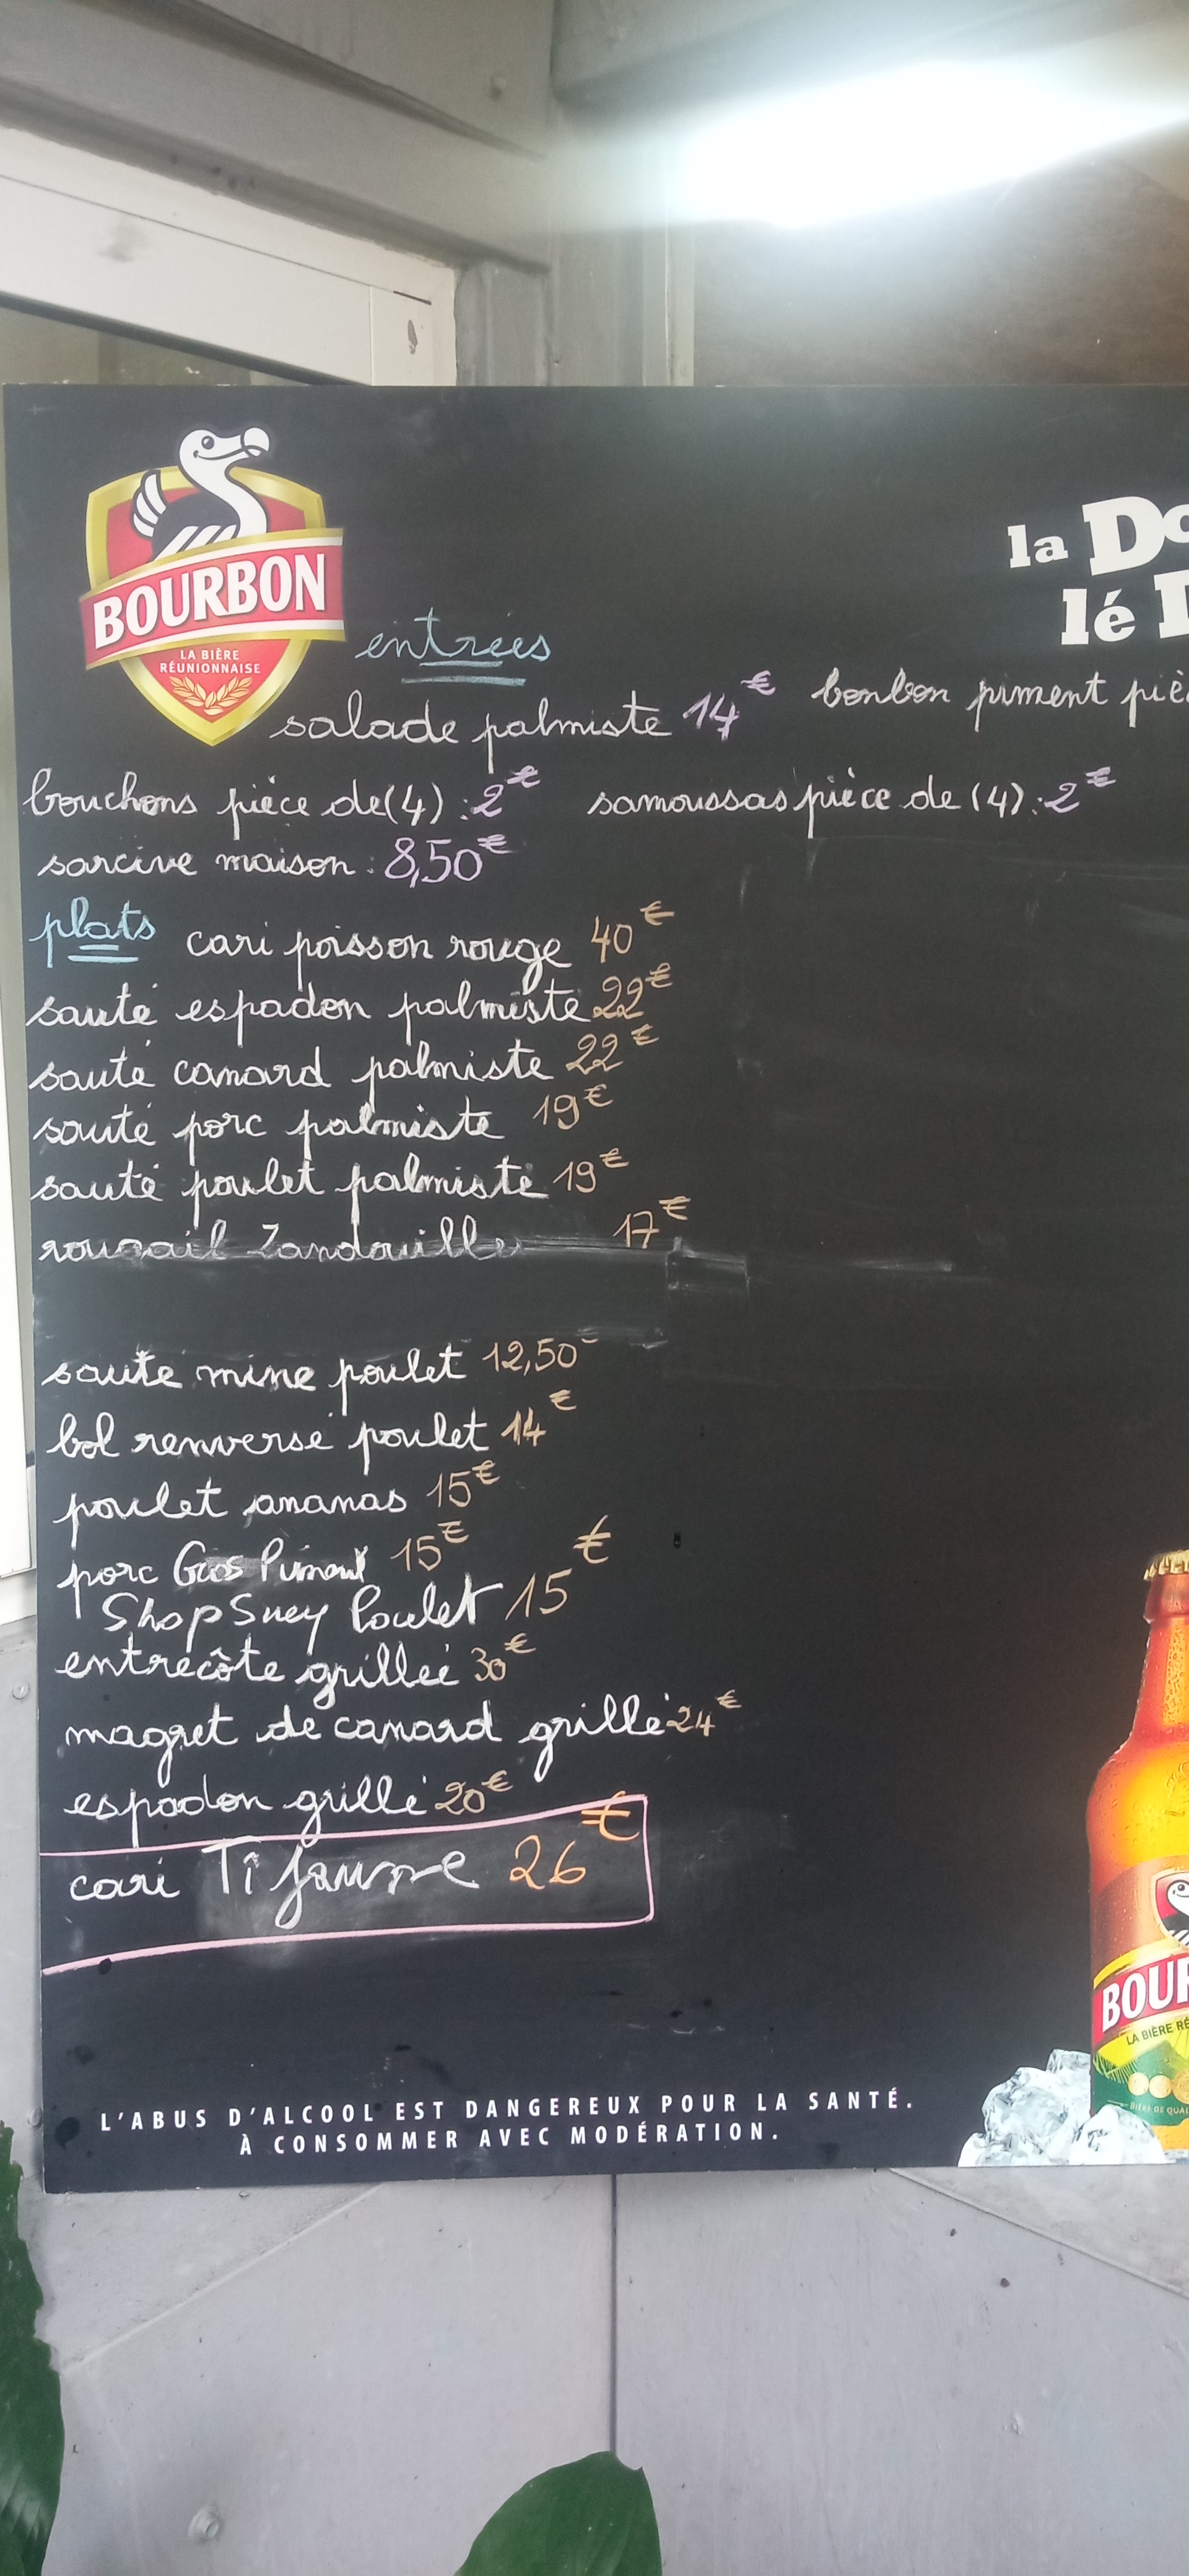 BOURBON
LA BIÈRE
RÉUNIONNAISE
la Do
lé
entrées
salade palmiste 14€ bonbon piment piè
bouchons pièce de(4) : 2€ samoussas pièce de (4) : 2€
sarcive maison : 8,50€
plats cari poisson rouge 40€
sauté espadon palmiste 22€
sauté canard palmiste 22€
sauté porc palmiste 19€
sauté poulet palmiste 19€
rougail Zandouilles 17€
sauté mine poulet 12,50
bol renversé poulet 14€
poulet ananas 15€
porc Gros Piment 15€
Shop Suey Poulet 15€
entrecôte grillée 30€
magret de canard grillé 24€
espadon grillé 20€
cari Ti Jaune 26€
BOUR
LA BIÈRE RÉ
BIÈRE DE QUAL
L'ABUS D'ALCOOL EST DANGEREUX POUR LA SANTÉ.
À CONSOMMER AVEC MODÉRATION.